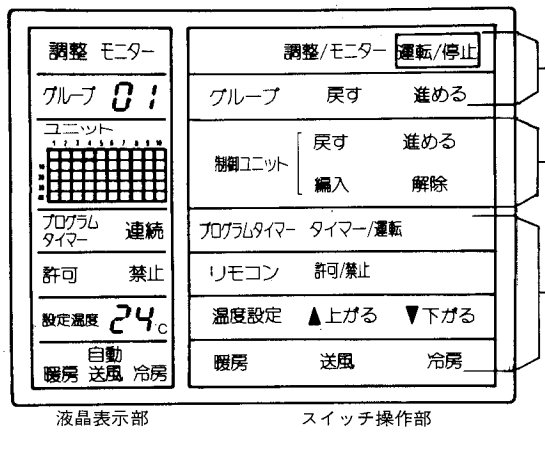 調整 モニター
グループ 01
ユニット
1 2 3 4 5 6 7 8 9 10
プログラム
タイマー 連続
許可 禁止
設定温度 24℃
自動
暖房 送風 冷房
液晶表示部
調整/モニター 運転/停止
グループ 戻す 進める
制御ユニット 戻す 進める
編入 解除
プログラムタイマー タイマー/運転
リモコン 許可/禁止
温度設定 ▲上がる ▼下がる
暖房 送風 冷房
スイッチ操作部